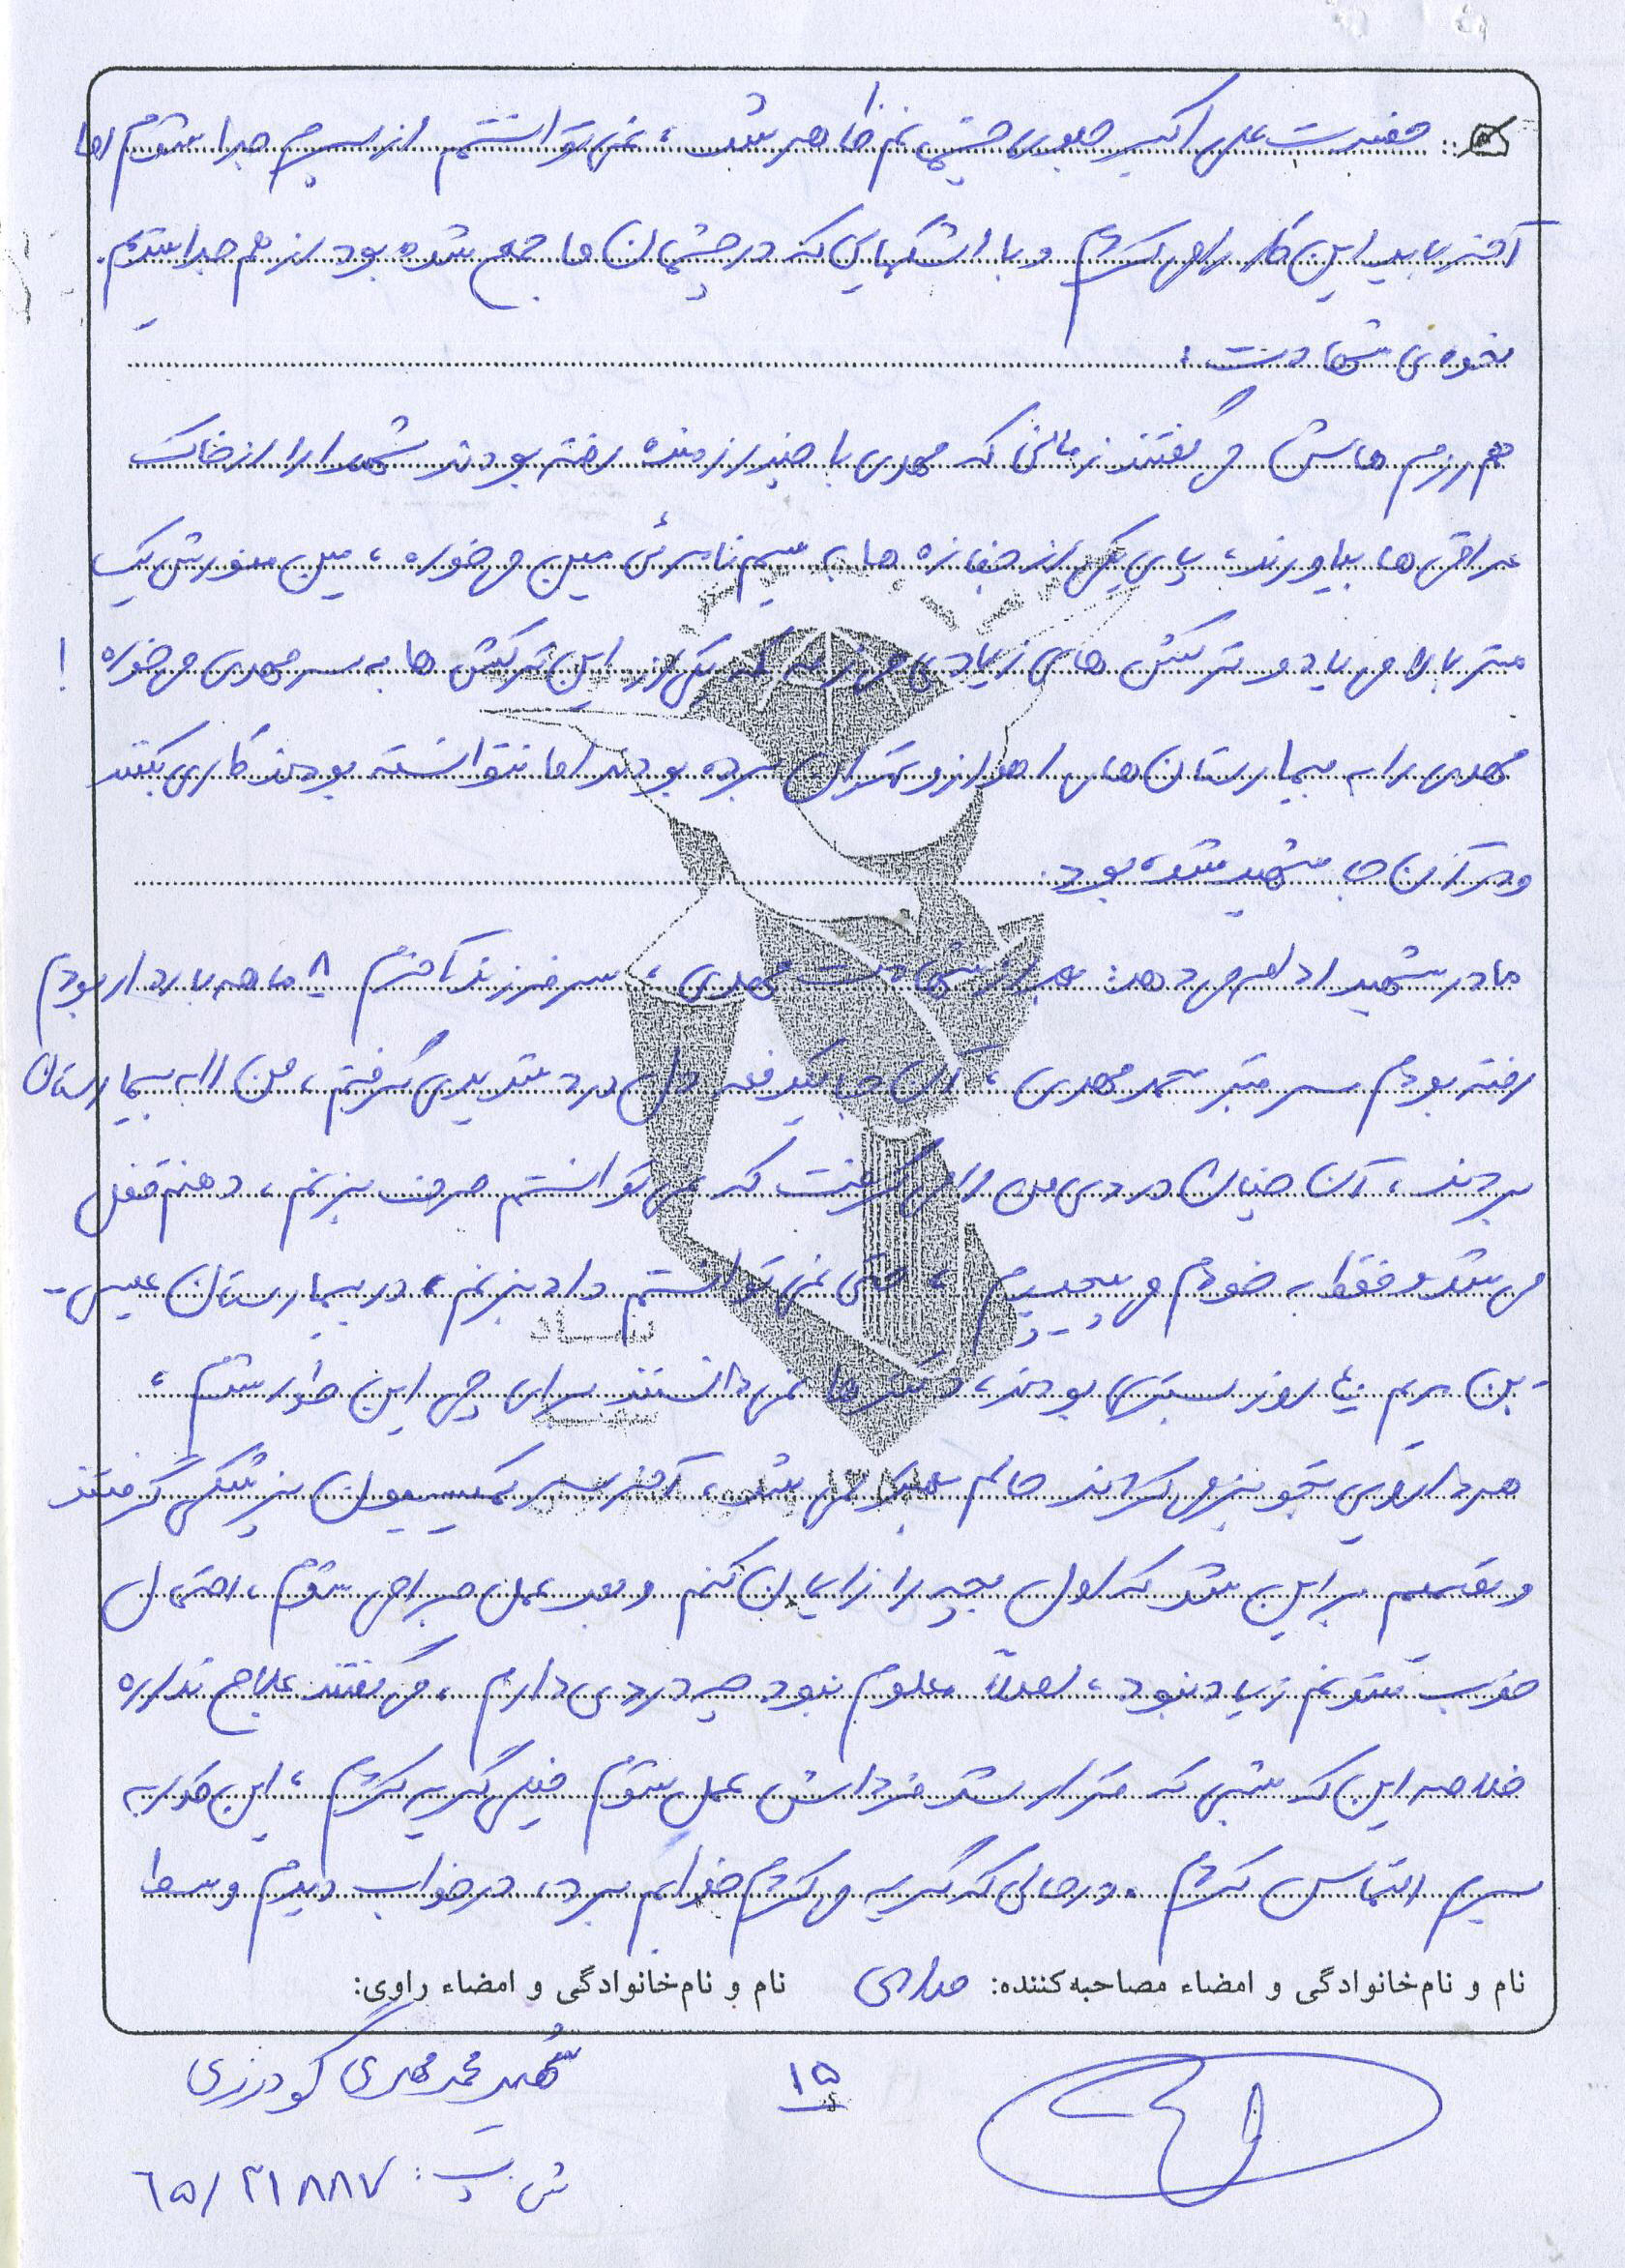 حضرت علی اکبر جلوی چشمانم ظاهر شد، نمی توانستم از پسرم جدا شوم اما
آخر باید این کار را می کردم و با اشکهایی که در چشمان ما جمع شده بود از هم جدا شدیم.
نحوه ی شهادت:
هم رزم هاش می گفتند زمانی که مهدی با چند رزمنده رفته بودند شهدا را از خاک
عراقی ها بیاورند، پای یکی از جنازه ها به سیم نامرئی مین می خوره، مین منورش یک
متر بالا می یاد و ترکش های زیادی می زنه که یکی از این ترکش ها به سر مهدی می خوره!
مهدی را به بیمارستان های اهواز و تهران برده بودند اما نتوانسته بودند کاری بکنند
و در آن جا شهید شده بود.
مادر شهید ادامه می دهد: بعد از شهادت مهدی، سر فرزند آخرم ۸ ماهه باردار بودم
رفته بودم سر قبر محمد مهدی، آن جا یکدفعه دل درد شدیدی گرفتم، من را به بیمارستان
بردند، آن چنان دردی من را می گرفت که نمی توانستم حرف بزنم، دهنم قفل
می شد و فقط به خودم می پیچیدم، حتی نمی توانستم داد بزنم، در بیمارستان عیسی -
- بن مریم روز بستری بودند، دکترها نمی دانستند برای چی این طور شدم،
هر دارویی تجویز می کردند حالم بهتر نمی شد، آخر سر کمیسیون پزشکی گرفتند
و تصمیم بر این شد که اول بچه را زایمان کنم و بعد عمل جراحی شوم، احتمال
خوب شدنم زیاد نبود، اصلاً معلوم نبود چه دردی دارم، می گفتند علاج نداره
خلاصه این که شبی که قرار شد فرداش عمل شوم خیلی گریه کردم، این طور به
پسرم التماس کردم. در حالی که گریه می کردم خوابم برد، در خواب دیدم وسط
نام و نام‌خانوادگی و امضاء مصاحبه‌کننده: نام و نام‌خانوادگی و امضاء راوی:
شهید محمد مهدی گودرزی
۱۵
ش پ: ۶۵/۲۱۸۸۷